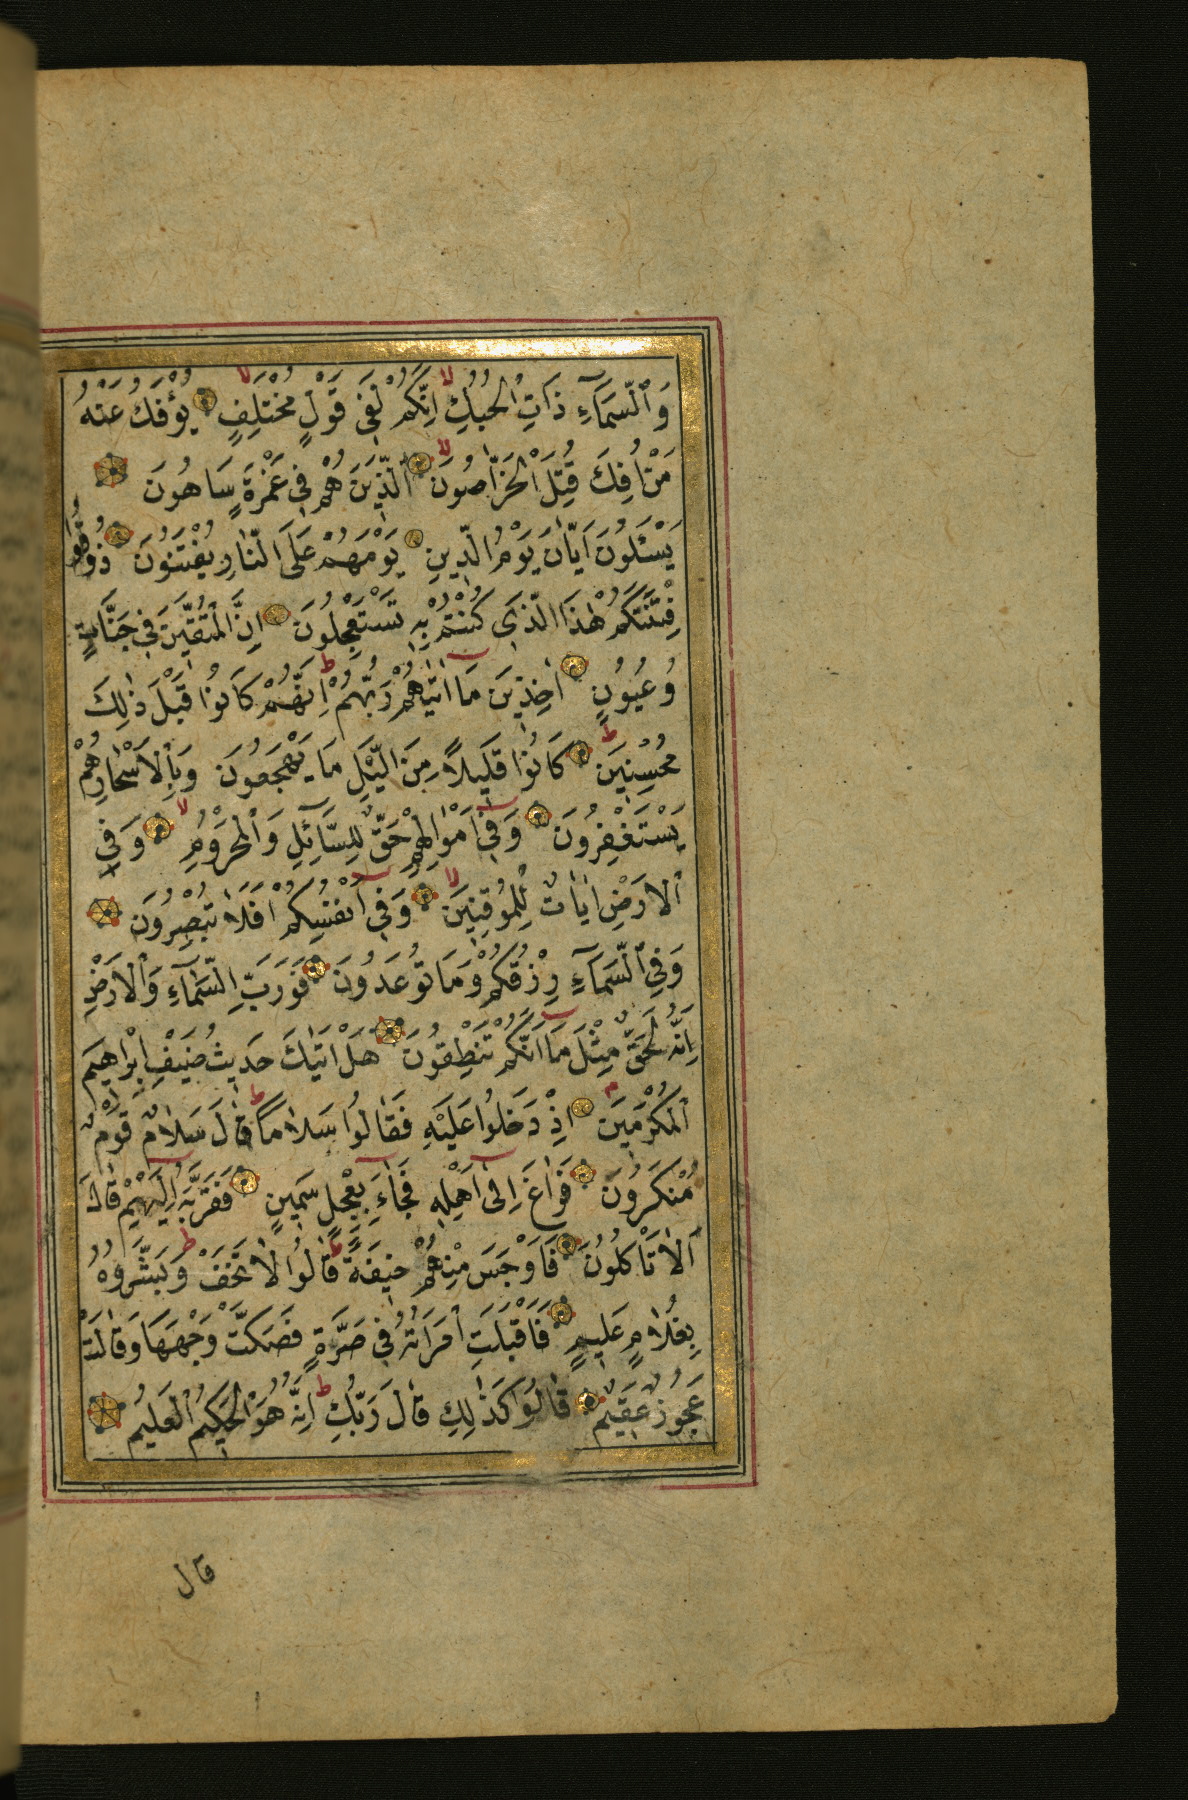 وَٱلسَّمَآءِ ذَاتِ الْحُبُكِ اِنَّكُمْ لَفِى قَوْلٍ مُخْتَلِفٍ يُؤْفَكُ عَنْهُ
مَنْ اُفِكَ قُتِلَ الْخَرَّاصُونَ اَلَّذِينَ هُمْ فِى غَمْرَةٍ سَاهُونَ
يَسْئَلُونَ اَيَّانَ يَوْمُ الدِّينِ يَوْمَهُمْ عَلَى النَّارِ يُفْتَنُونَ ذُوقُوا
فِتْنَتَكُمْ هٰذَا الَّذِى كُنْتُمْ بِهِ تَسْتَعْجِلُونَ اِنَّ الْمُتَّقِينَ فِى جَنَّاتٍ
وَعُيُونٍ اٰخِذِينَ مَا اٰتٰيهُمْ رَبُّهُمْ اِنَّهُمْ كَانُوا قَبْلَ ذٰلِكَ
مُحْسِنِينَ كَانُوا قَلِيلاً مِنَ الَّيْلِ مَا يَهْجَعُونَ وَبِالْاَسْحَارِ هُمْ
يَسْتَغْفِرُونَ وَفِى اَمْوَالِهِمْ حَقٌّ لِلسَّآئِلِ وَالْمَحْرُومِ وَفِى
ٱلْاَرْضِ اٰيَاتٌ لِلْمُوقِنِينَ وَفِى اَنْفُسِكُمْ اَفَلَا تُبْصِرُونَ
وَفِى ٱلسَّمَآءِ رِزْقُكُمْ وَمَا تُوعَدُونَ فَوَرَبِّ السَّمَآءِ وَٱلْاَرْضِ
اِنَّهُ لَحَقٌّ مِثْلَ مَا اَنَّكُمْ تَنْطِقُونَ هَلْ اَتٰيكَ حَدِيثُ ضَيْفِ اِبْرٰهِيمَ
ٱلْمُكْرَمِينَ اِذْ دَخَلُوا عَلَيْهِ فَقَالُوا سَلَامًا قَالَ سَلَامٌ قَوْمٌ
مُنْكَرُونَ فَرَاغَ اِلَى اَهْلِهِ فَجَآءَ بِعِجْلٍ سَمِينٍ فَقَرَّبَهُ اِلَيْهِمْ قَالَ
اَلَا تَاْكُلُونَ فَاَوْجَسَ مِنْهُمْ خِيفَةً قَالُوا لَا تَخَفْ وَبَشَّرُوهُ
بِغُلَامٍ عَلِيمٍ فَاَقْبَلَتِ ٱمْرَاَتُهُ فِى صَرَّةٍ فَصَكَّتْ وَجْهَهَا وَقَالَتْ
عَجُوزٌ عَقِيمٌ قَالُوا كَذٰلِكِ قَالَ رَبُّكِ اِنَّهُ هُوَ الْحَكِيمُ الْعَلِيمُ
قال